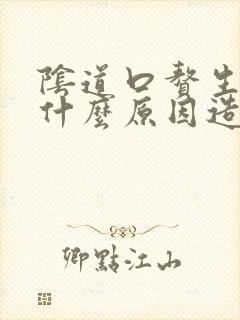 陰道口贅生
什麼原因造
卿點江山